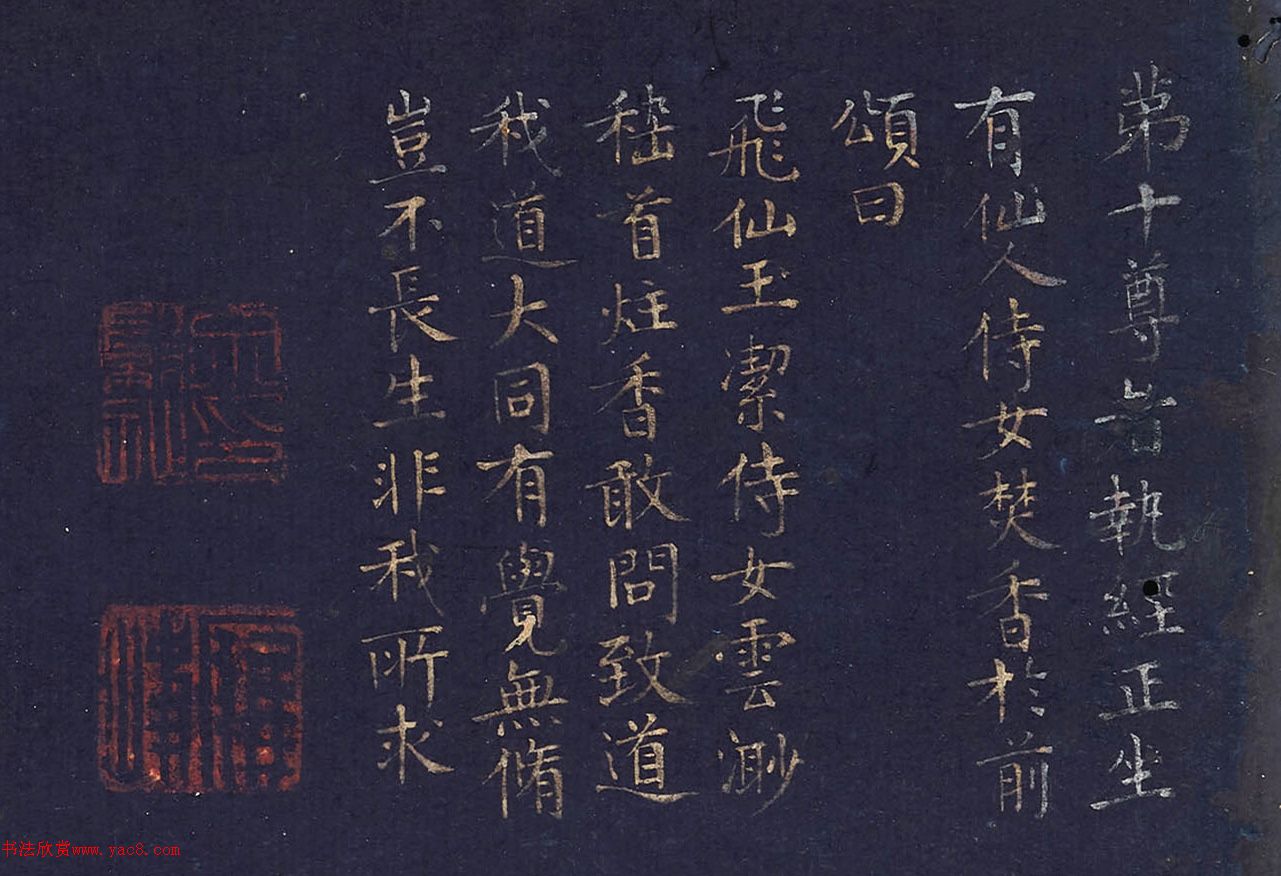 苐十尊者執經正坐
有仙人侍女焚香於前
頌曰
飛仙玉潔侍女雲渺
稽首炷香敢問致道
我道大同有覺無脩
豈不長生非我所求
书法欣赏www.yac8.com